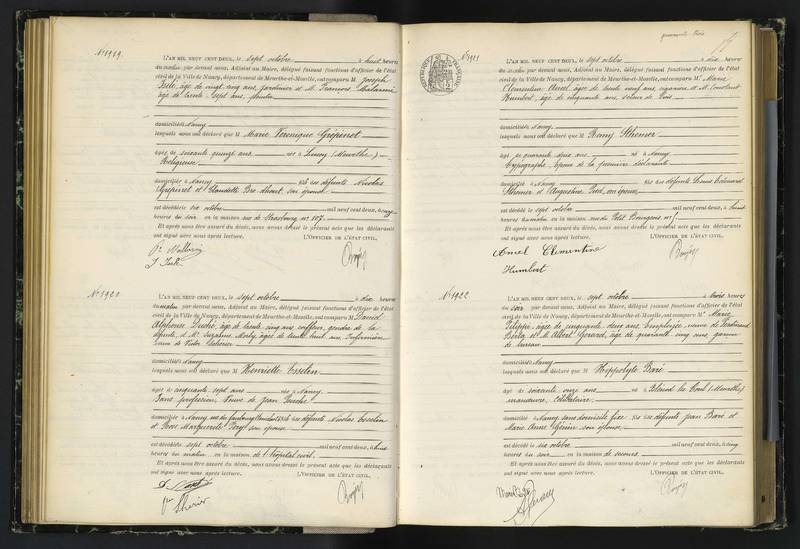 N° 1919.
L'AN MIL NEUF CENT DEUX, le sept octobre à huit heures
du matin par devant nous, Adjoint au Maire, délégué faisant fonctions d'officier de l'état
civil de la Ville de Nancy, département de Meurthe-et-Moselle, ont comparu M Joseph
âgé de vingt cinq ans, jardinier et M. François
âgé de trente sept ans,
domiciliés à Nancy
lesquels nous ont déclaré que M Marie Véronique Grépinet
âgée de soixante quinze ans née à (Meurthe)
Religieuse
domiciliée à Nancy fille des défunts Nicolas
Grépinet et son épouse
est décédée le six octobre mil neuf cent deux, à onze
heures du soir en la maison rue de Strasbourg n° 107.
Et après nous être assuré du décès, nous avons dressé le présent acte que les déclarants
ont signé avec nous après lecture. L'OFFICIER DE L'ÉTAT CIVIL,
N° 1920
L'AN MIL NEUF CENT DEUX, le sept octobre à dix heures
du matin par devant nous, Adjoint au Maire, délégué faisant fonctions d'officier de l'état
civil de la Ville de Nancy, département de Meurthe-et-Moselle, ont comparu M David
Alphonse âgé de trente cinq ans coiffeur, gendre de la
défunte, et Mme âgée de trente huit ans, Infirmière
domiciliés à Nancy
lesquels nous ont déclaré que M Henriette Esselin
âgée de cinquante sept ans née à Nancy
Sans profession, Veuve de Jean
domiciliée à Nancy, rue du faubourg fille des défunts Nicolas Esselin
et Rose Marguerite son épouse
est décédée le sept octobre mil neuf cent deux, à
heures du matin en la maison de l'hôpital civil.
Et après nous être assuré du décès, nous avons dressé le présent acte que les déclarants
ont signé avec nous après lecture. L'OFFICIER DE L'ÉTAT CIVIL,
quarante trois
N° 1921
L'AN MIL NEUF CENT DEUX, le sept octobre à dix heures
du matin par devant nous, Adjoint au Maire, délégué faisant fonctions d'officier de l'état
civil de la Ville de Nancy, département de Meurthe-et-Moselle, ont comparu Me Marie
Clémentine Amel, âgée de trente neuf ans, et M. Constant
Humbert, âgé de cinquante ans, scieur de bois
domiciliés à Nancy
lesquels nous ont déclaré que M Remy Sthemer
âgé de quarante ans né à Nancy
Typographe, époux de la première déclarante
domicilié à Nancy fils des défunts Louis Edouard
Sthemer et Augustine Petit, son épouse
est décédé le sept octobre mil neuf cent deux, à
heures du matin en la maison rue du Petit Bourgeois n° 5
Et après nous être assuré du décès, nous avons dressé le présent acte que les déclarants
ont signé avec nous après lecture. L'OFFICIER DE L'ÉTAT CIVIL,
Amel Clementine
Humbert
N° 1922
L'AN MIL NEUF CENT DEUX, le sept octobre à trois heures
du soir par devant nous, Adjoint au Maire, délégué faisant fonctions d'officier de l'état
civil de la Ville de Nancy, département de Meurthe-et-Moselle, ont comparu Me Marie
âgée de cinquante deux ans, Employée, veuve de Ferdinand
et M. Albert Gérard, âgé de quarante cinq ans, garçon
de bureau
domiciliés à Nancy
lesquels nous ont déclaré que M Hippolyte Baré
âgé de soixante onze ans né à Blénod les Toul (Meurthe)
manœuvre, célibataire
domicilié à Nancy sans domicile fixe fils des défunts Jean Baré et
Marie Anne son épouse
est décédé le six octobre mil neuf cent deux, à cinq
heures du soir en la maison de secours
Et après nous être assuré du décès, nous avons dressé le présent acte que les déclarants
ont signé avec nous après lecture. L'OFFICIER DE L'ÉTAT CIVIL,